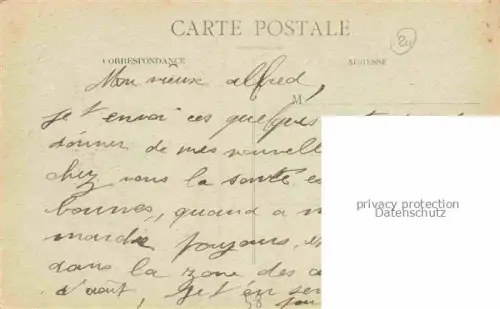 CARTE POSTALE
24
CORRESPONDANCE
ADRESSE
Mon vieux alfred,
M
Je t envoi ces quelques
donner de mes nouvelle
chez vous la santé es
bonnes, quand a m
mardie toujours.
dans la zone des a
d'août, Je t'en ser
privacy protection
Datenschutz